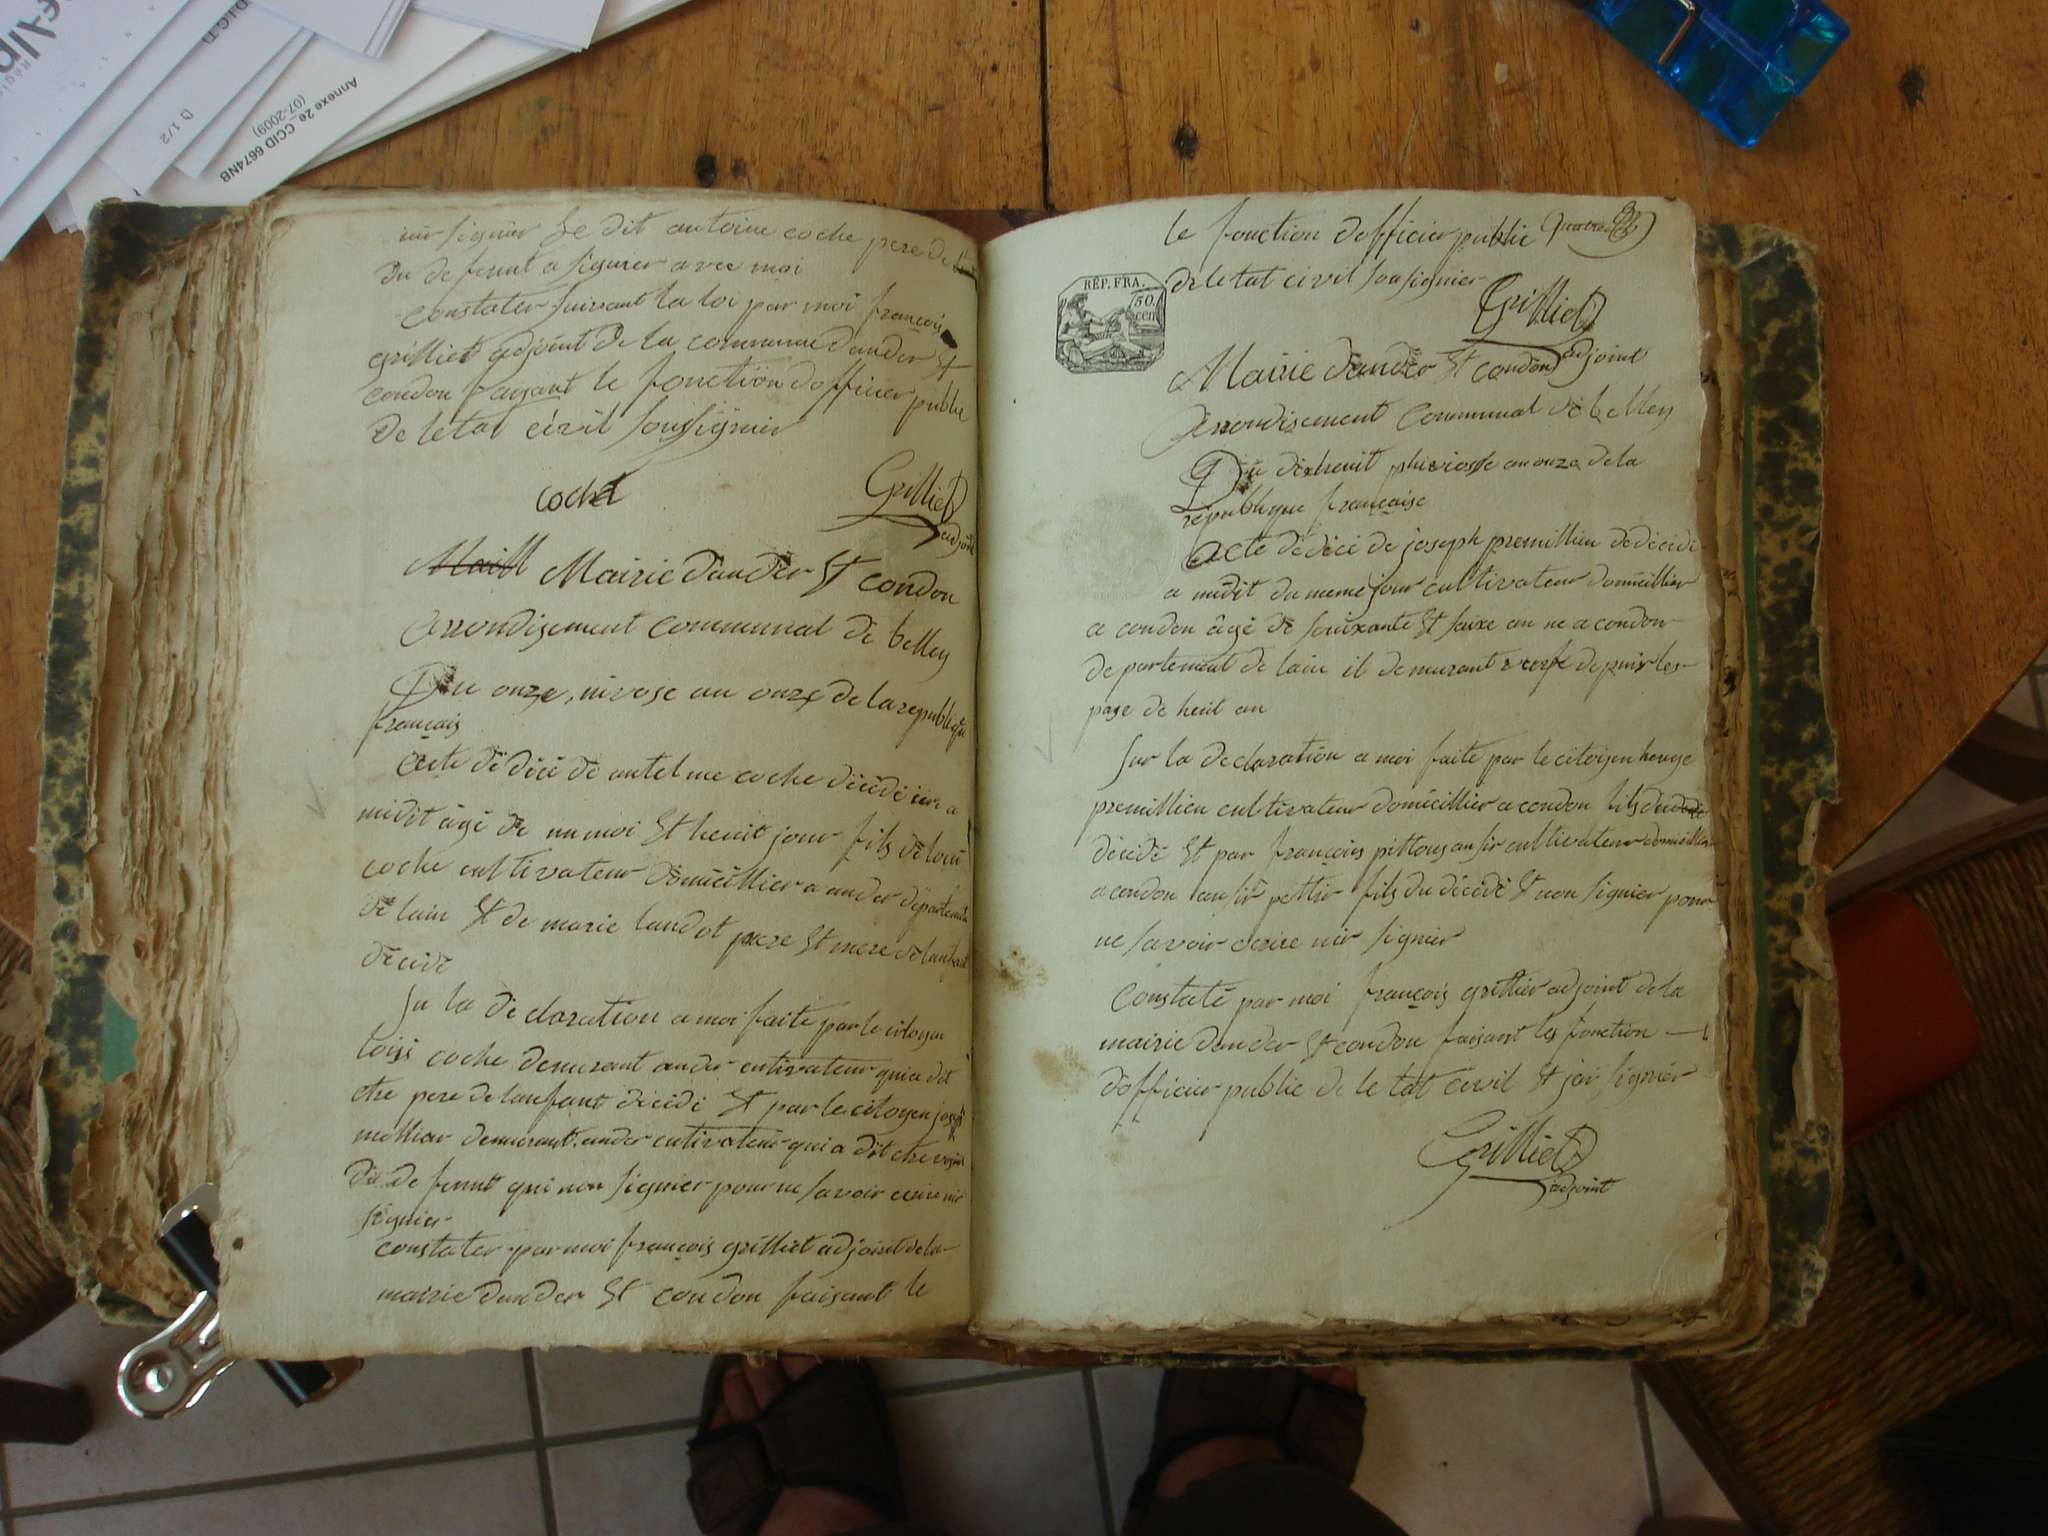 Annexe 2e CCID 6674NB
(07-2009)
D 1/2
nir signier Le dit antoine coche pere de
Du defunt a signier avec moi
constater suivant la loi par moi françois
grilliet adjoint de la commune dander et
condon faisant le fonction dofficier public
de letat civil sousignier
coche
Grilliet
adjoint
Mairie dander et condon
Arrondisement communal de belley
Du onze nivose an onze de la republique
français
Acte de déci de antelme coche décédé ier a
midit âgé de un moi et heuit jour fils de loui
coche cultivateur domicillier a ander departement
de lain et de marie landot pere et mere de lanfant
décédé
Su la déclaration a moi faite par le citoyen
loisi coche demurant ander cutivateur qui a dit
etre pere de lanfant décédé et par le citoyen joseph
millier demurant ander cutivateur qui a dit etre
du defunt qui non signier pour ne savoir ecrire nir
signier
constater par moi françois grilliet adjoint de la
mairie dander et condon faisant le
le fonction dofficier public
de letat civil sousignier
RÉP. FRA.
50
cen
Grilliet
adjoint
Mairie dander et condon
Arrondisement communal de belley
Du dixheuit pluviosse an onze de la
republique française
Acte de déci de joseph premillieu dédécédé
a midit du meme jour cultivateur domicillier
a condon âgé de souixante et saixe an ne a condon
departement de lain il demurant depuis les
pase de heuit an
Sur la declaration a moi faite par le citoyen
premillieu cultivateur domicillier a condon fils du
décédé et par françois cultivateur domicillier
a condon fils du décédé et non signier pour
ne savoir ecrire nir signier
Constaté par moi françois grillier adjoint de la
mairie dander et condon faisant les fonction
dofficier public de letat civil et jai signier
Grilliet
adjoint